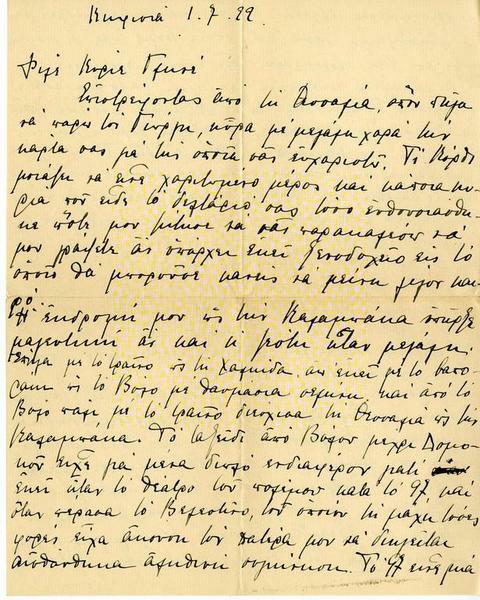 Κηφισιά 1.7.22
Φίλε Κύριε
Επιστρέφοντας από τη Θεσσαλία, όπου πήγα
να πάρω τον Γιώργη, ηύρα με μεγάλη χαρά την
κάρτα σας για την οποία σας ευχαριστώ. Το
μοιάζη να είνε χαριτωμένο μέρος και κάποια κυ-
ρία που είδε το δελτάριό σας τόσο ενθουσιάσθη-
κε ώστε μου να σας παρακαλέσω να
μου γράψετε αν υπάρχει εκεί ξενοδοχείο εις το
οποίο θα μπορούσε κανείς να μείνη λίγον και-
ρό.
Η εκδρομή μου ως την Καλαμπάκα υπήρξε
μαγευτική αν και η ζέστη ήταν μεγάλη.
Επήγα με το τραίνο ως τη Χαλκίδα, απ' εκεί με το βαπό-
ρι ως το Βόλο με θαυμάσια σελήνη και από το
Βόλο πάλι με το τραίνο διέσχισα τη Θεσσαλία ως την
Καλαμπάκα. Το ταξείδι από Βόλου μέχρι Δομο-
κού είχε για μένα διπλό ενδιαφέρον γιατί
εκεί ήταν το θέατρο του πολέμου κατά το 97 και
όταν πέρασα το Βελεστίνο, του οποίου τη μάχη τόσες
φορές είχα ακούσει τον πατέρα μου να διηγείται
αισθάνθηκα αληθινή συγκίνηση. Το 97 είνε μιά